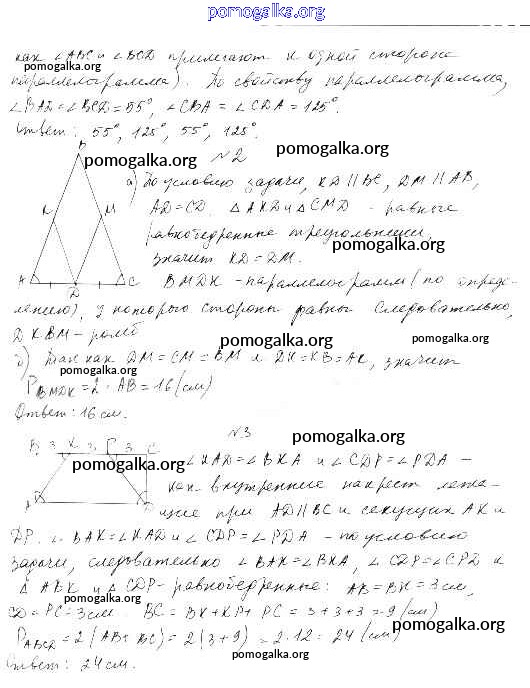 pomogalka.org
как ∠ABC и ∠BCD прилегают к одной стороне
параллелограмма). По свойству параллелограмма,
∠BAD = ∠BCD = 55°, ∠CBA = ∠CDA = 125°.
Ответ: 55°, 125°, 55°, 125°.
pomogalka.org
№2
B
K
M
A
D
C
а) По условию задачи, KD || BC, DM || AB,
pomogalka.org
AD = CD. △AKD и △CMD - равные
равнобедренные треугольники,
pomogalka.org
значит KD = DM.
BMDK - параллелограмм (по опреде-
pomogalka.org
лению), у которого стороны равны. Следовательно,
DKBM - ромб
pomogalka.org
б) Так как DM = CM = BM и DK = KB = AK, значит
pomogalka.org
P BMDK = 2 · AB = 16 (см)
Ответ: 16 см.
№3
pomogalka.org
B 3 K 3 P 3 C
A
D
pomogalka.org
∠KAD = ∠BKA и ∠CDP = ∠PDA -
как внутренние накрест лежа-
pomogalka.org
щие при AD || BC и секущих AK и
DP. ∠BAK = ∠KAD и ∠CDP = ∠PDA - по условию
задачи, следовательно ∠BAK = ∠BKA, ∠CDP = ∠CPD и
△ABK и △CDP - равнобедренные: AB = BK = 3 см,
pomogalka.org
CD = PC = 3 см. BC = BK + KP + PC = 3 + 3 + 3 = 9 (см)
pomogalka.org
P ABCD = 2 (AB + BC) = 2 (3 + 9) = 2 · 12 = 24 (см)
pomogalka.org
Ответ: 24 см.